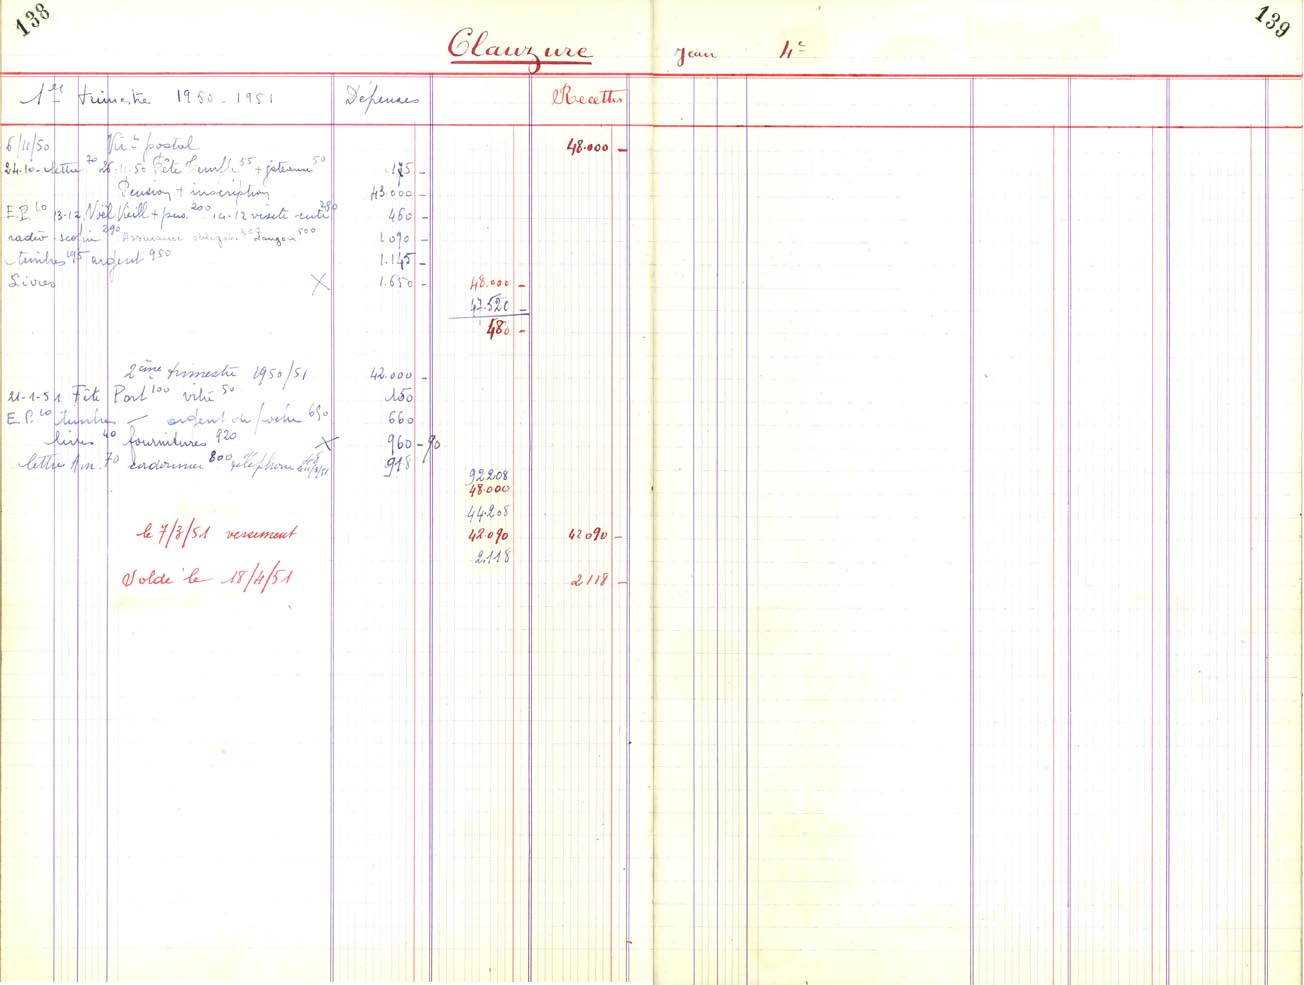 138
139
Clauzure Jean 4e
1er trimestre 1950-1951 Dépenses Recettes
6/11/50 Virt postal 48.000 -
24-10- lettre 70 26-11-50 Fête 55 + 50 175 -
Pension + inscription 43.000 -
E.P. 10 13-12 Noël Vieill + 200 14-12 visite 280 460 -
radio-scopie 290 Assurance obligat. 300 500 1090 -
timbres 195 argent 950 1.145 -
Livres X 1.650 - 48.000 -
47.520 -
480 -
2ème trimestre 1950/51 42.000 -
21-1-51 Fête Port 100 50 150
E.P. 10 timbres - argent de poche 650 660
livres 40 fournitures 920 X 960 - 90
lettre 70 cordonnier 800 téléphone 48 918
92208
48.000
44208
le 7/3/51 versement 42090 42090 -
2.118
Soldé le 18/4/51 2118 -